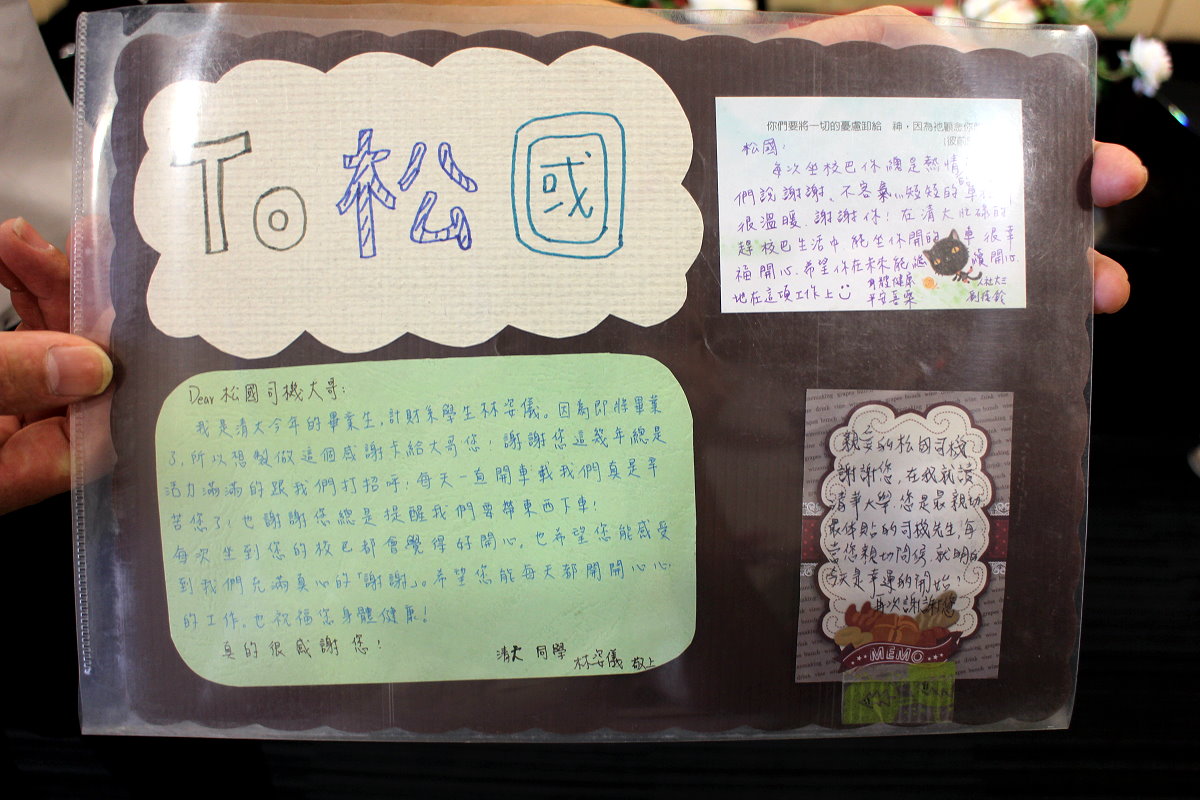 To 松國
Dear 松國司機大哥:
我是清大今年的畢業生,計財系學生林姿儀。因為即將畢業
了,所以想製做這個感謝卡給大哥您!謝謝您這幾年總是
活力滿滿的跟我們打招呼,每天一直開車載我們真是辛
苦您了!也謝謝您總是提醒我們要帶東西下車!
每次坐到您的校巴都會覺得好開心。也希望您能感受
到我們充滿真心的「謝謝」。希望您能每天都開開心心
的工作。也祝福您身體健康!
真的很感謝您!
清大 同學
林姿儀 敬上
你們要將一切的憂慮卸給 神,因為祂顧念你
松國:
每次坐校巴你總是熱情
們說謝謝、不客氣
很溫暖.謝謝你!在清大忙碌的
趕校巴生活中,能坐休閒的 車很幸
福開心.希望你在未來能 續開心
地在這項工作上
身體健康
平安喜樂
大三
親愛的松國司機
謝謝您,在我就讀
清華大學,您是最親切
最体貼的司機先生,每
當您親切問候,就明白
今天是幸運的開始!
再次謝謝您
MEMO